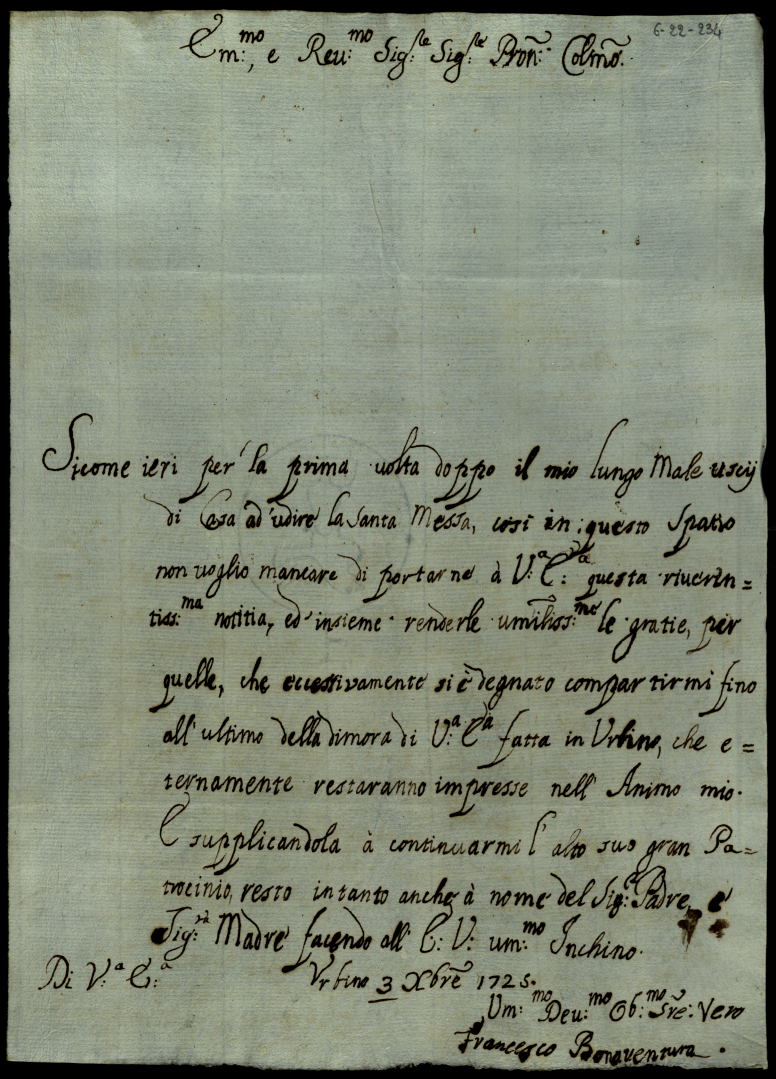 6-22-234
Em:mo, e Reu:mo Sig:re Sig:re Pron: Colmo.
Sicome ieri per la prima volta doppo il mio lungo Male uscij
di Casa ad udire la Santa Messa, così in questo Spatio
non voglio mancare di portarne à V:a E:a questa riveren=
tiss:ma notitia, ed insieme renderle umiliss:me le gratie, per
quelle, che eccessivamente si è degnato compartirmi fino
all'ultimo della dimora di V:a Ea fatta in Urbino, che e=
ternamente restaranno impresse nell'Animo mio.
E supplicandola à continuarmi l'alto suo gran Pa=
trocinio, resto intanto anche à nome del Sig:r Padre, e
Sig:ra Madre facendo all'E: V: um:mo Inchino.
Di V:a E:a Urbino 3 Xbre 1725.
Um:mo Deu:mo Ob:mo Sre: Vero
Francesco Bonaventura.